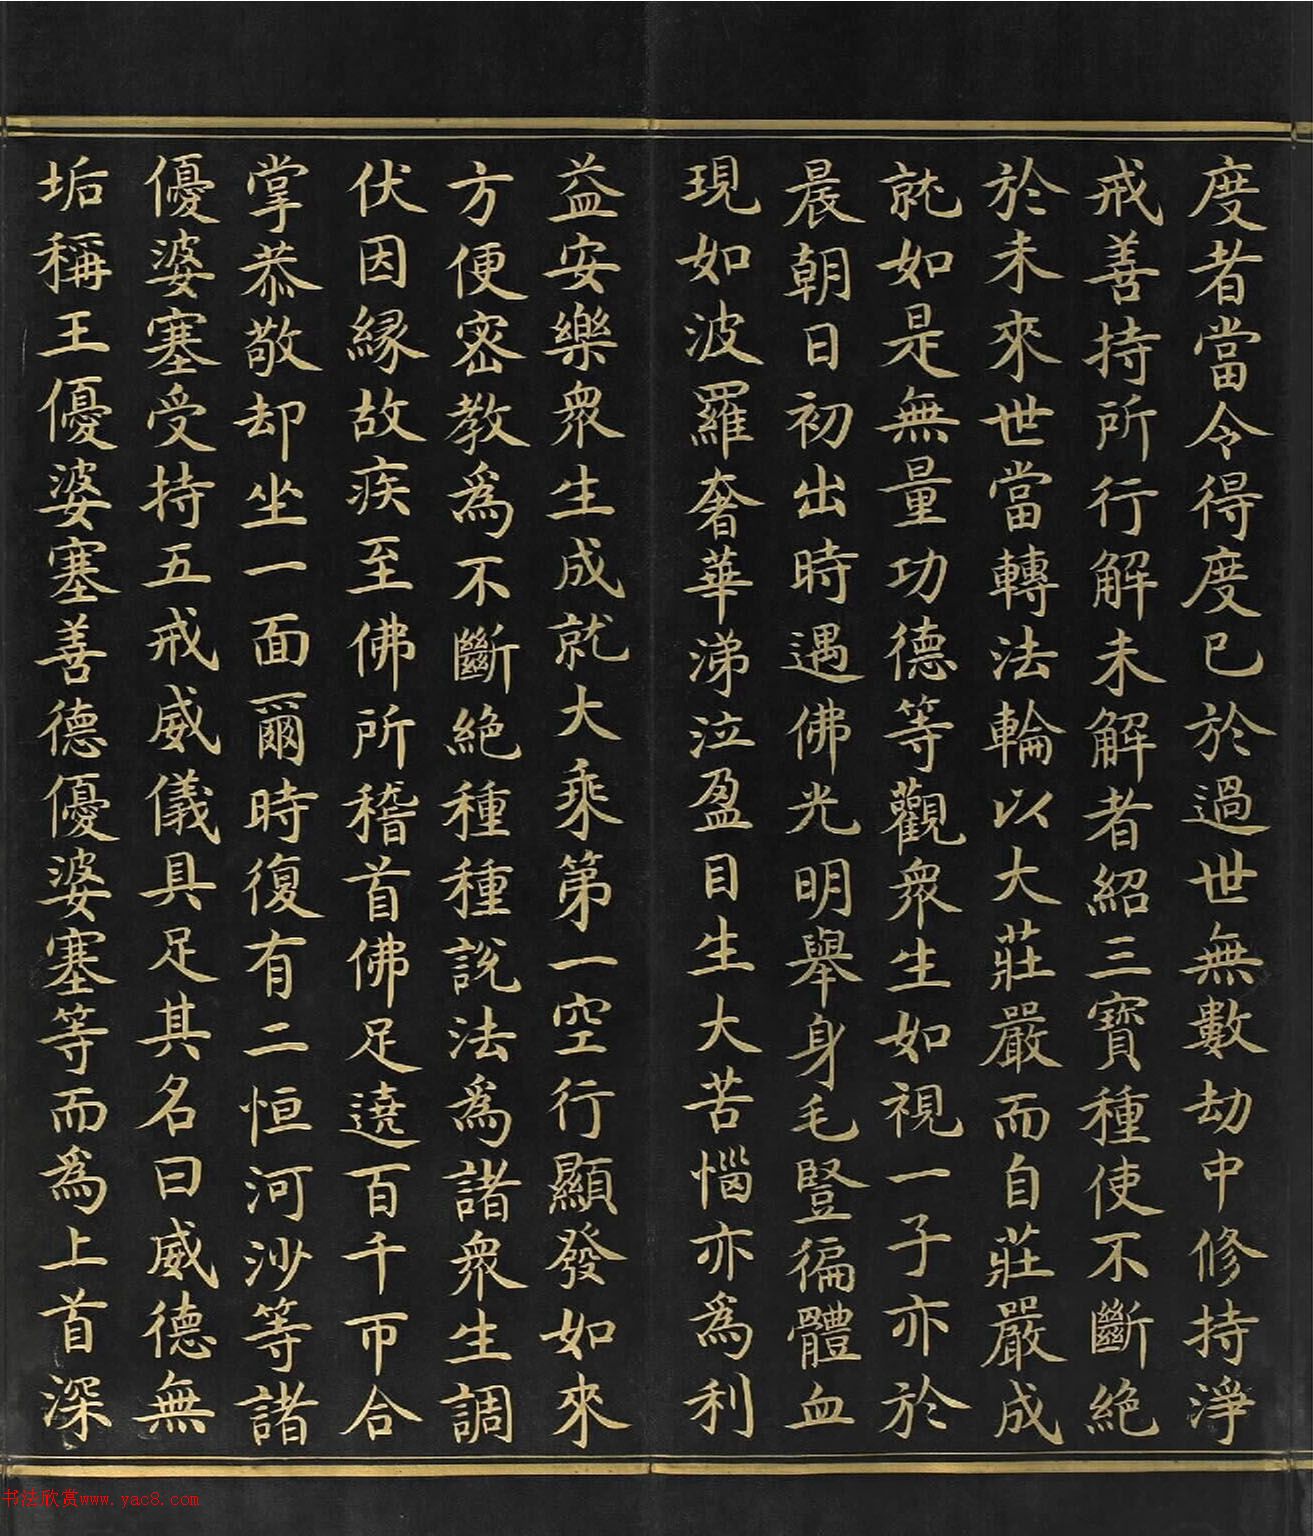 度者當令得度已於過世無數劫中修持淨
戒善持所行解未解者紹三寶種使不斷絕
於未來世當轉法輪以大莊嚴而自莊嚴成
就如是無量功德等觀眾生如視一子亦於
晨朝日初出時遇佛光明舉身毛豎徧體血
現如波羅奢華涕泣盈目生大苦惱亦為利
益安樂眾生成就大乘第一空行顯發如來
方便密教為不斷絕種種說法為諸眾生調
伏因緣故疾至佛所稽首佛足遶百千帀合
掌恭敬却坐一面爾時復有二恒河沙等諸
優婆塞受持五戒威儀具足其名曰威德無
垢稱王優婆塞善德優婆塞等而為上首深
书法欣赏www.yac8.com